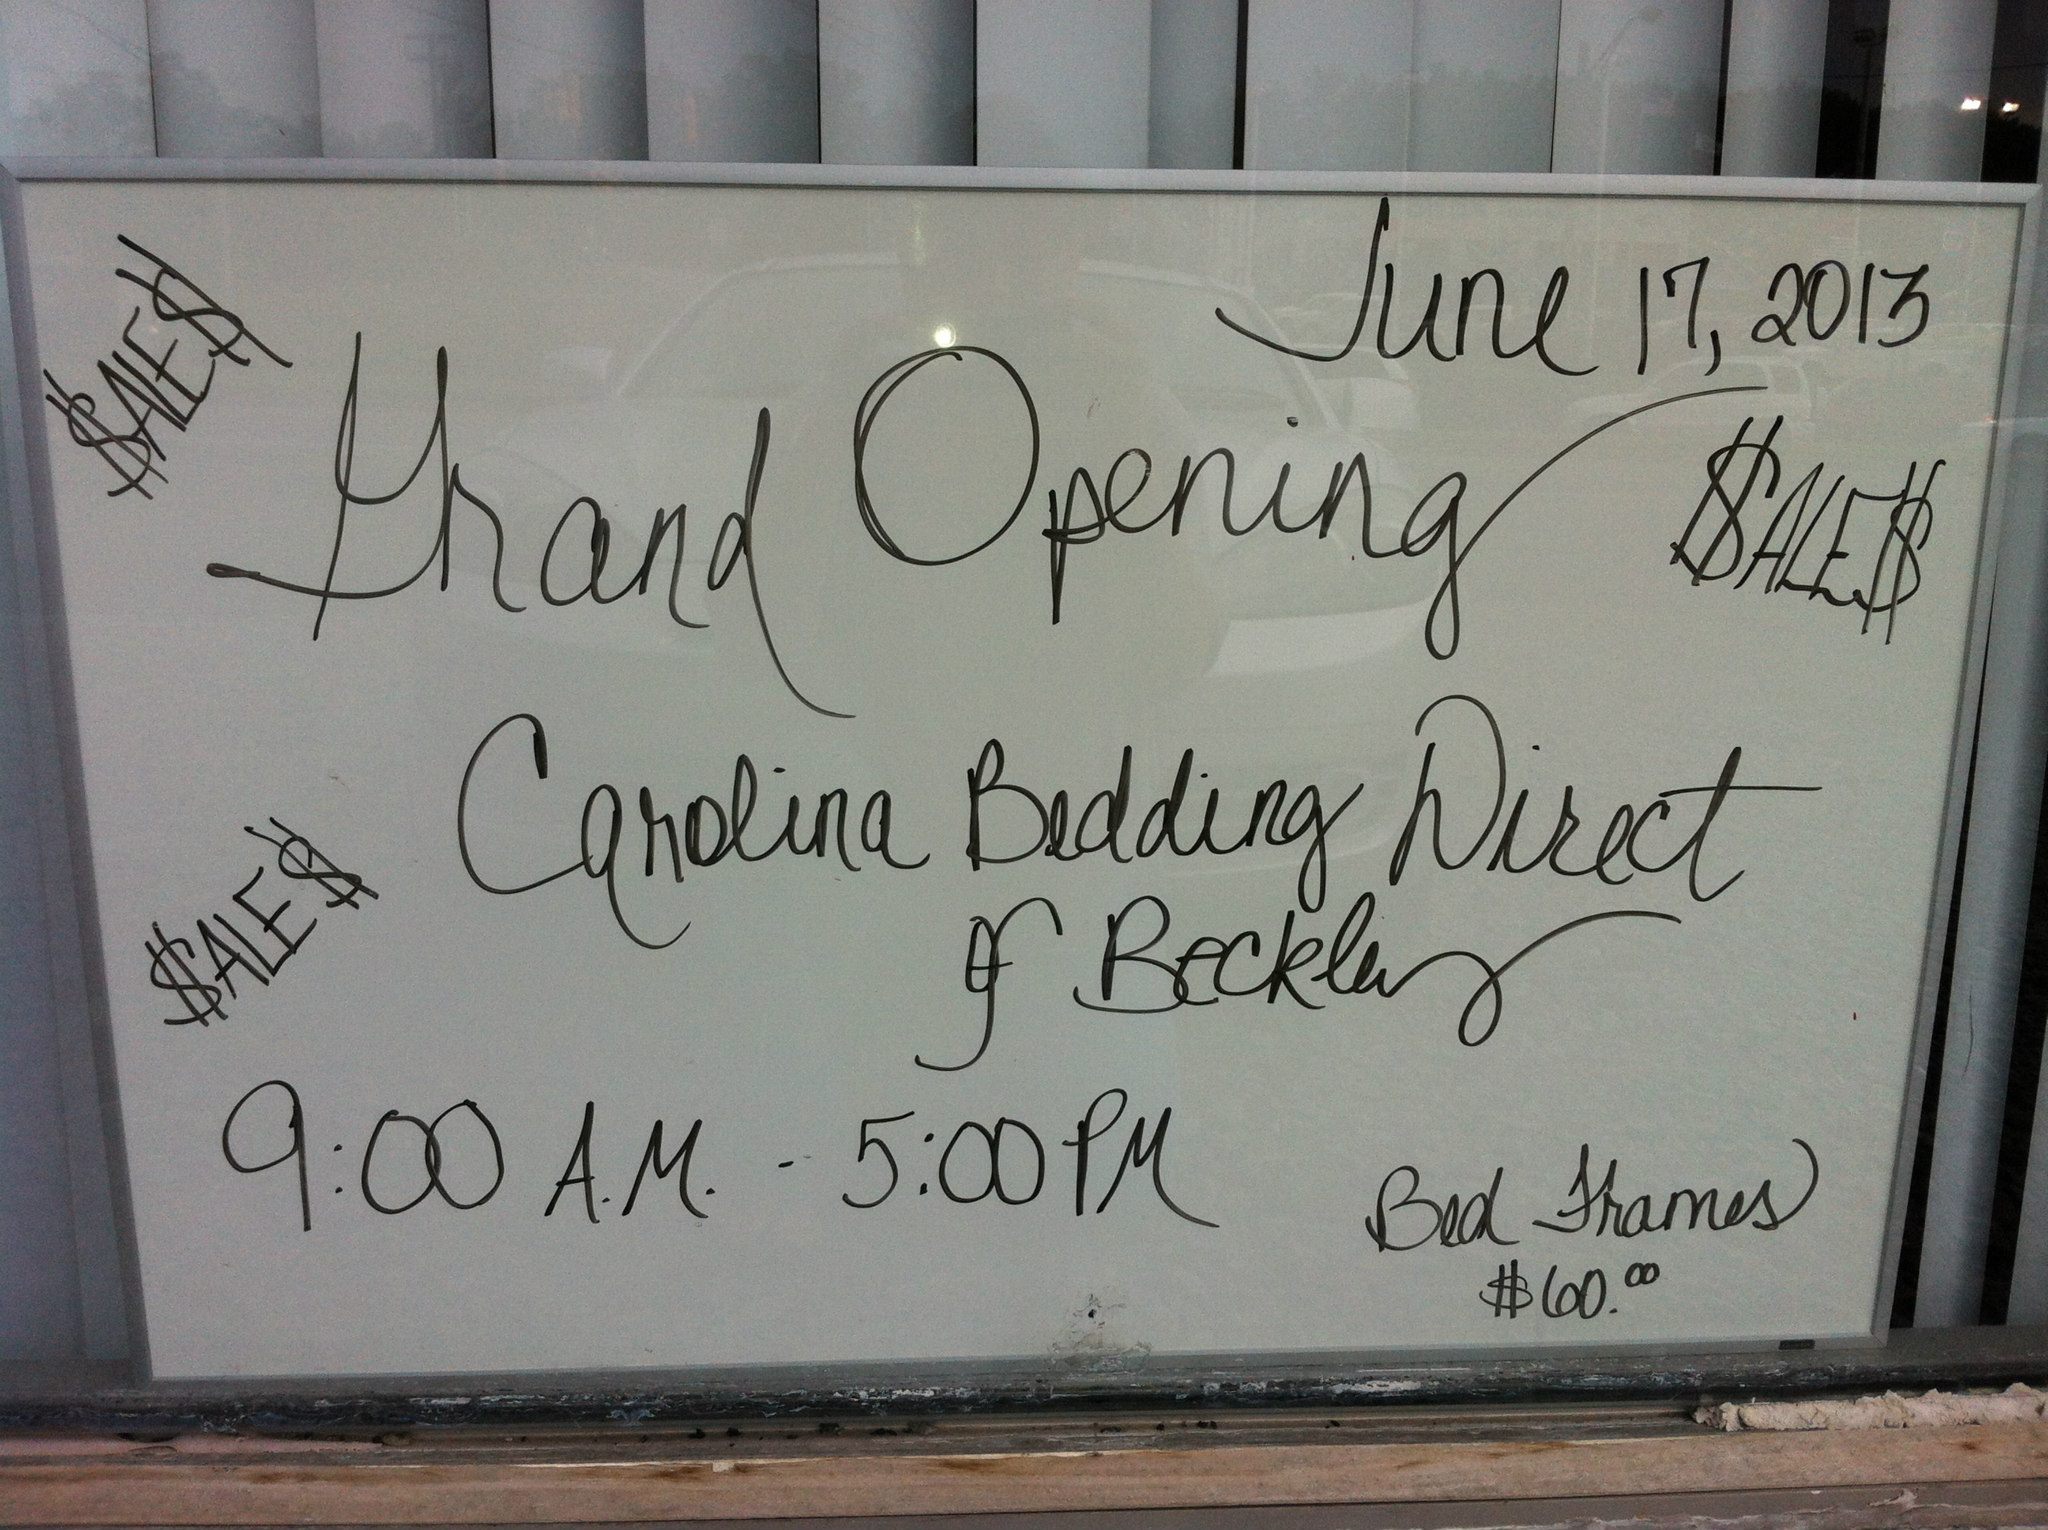 June 17, 2013
$ALE$
Grand Opening
$ALE$
Carolina Bedding Direct
of Beckley
$ALE$
9:00 A.M. - 5:00 PM
Bed Frames
$60.00